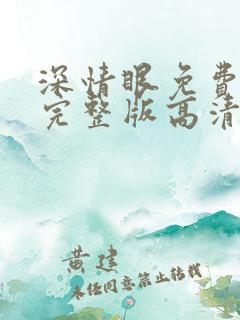 深情眼免费
完整版高清
黄建
未经同意禁止转载